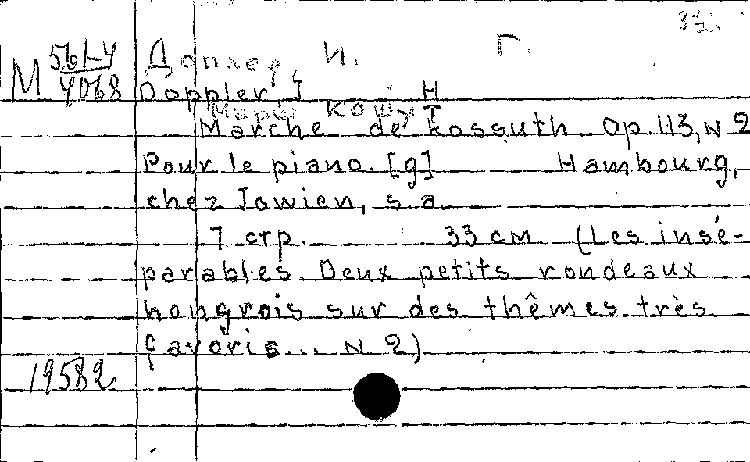 35.
М 561-4/4068 Доплер, И. Г.
Doppler, J H
Марш Кошут
Marche de Kossuth Op. 113, N 2
Pour le piano. [g] Hambourg,
chez Jowien, s. a.
7 стр. 33 см (Les insé-
parables. Deux petits rondeaux
hongrois sur des thêmes très
favoris... N 2)
19582